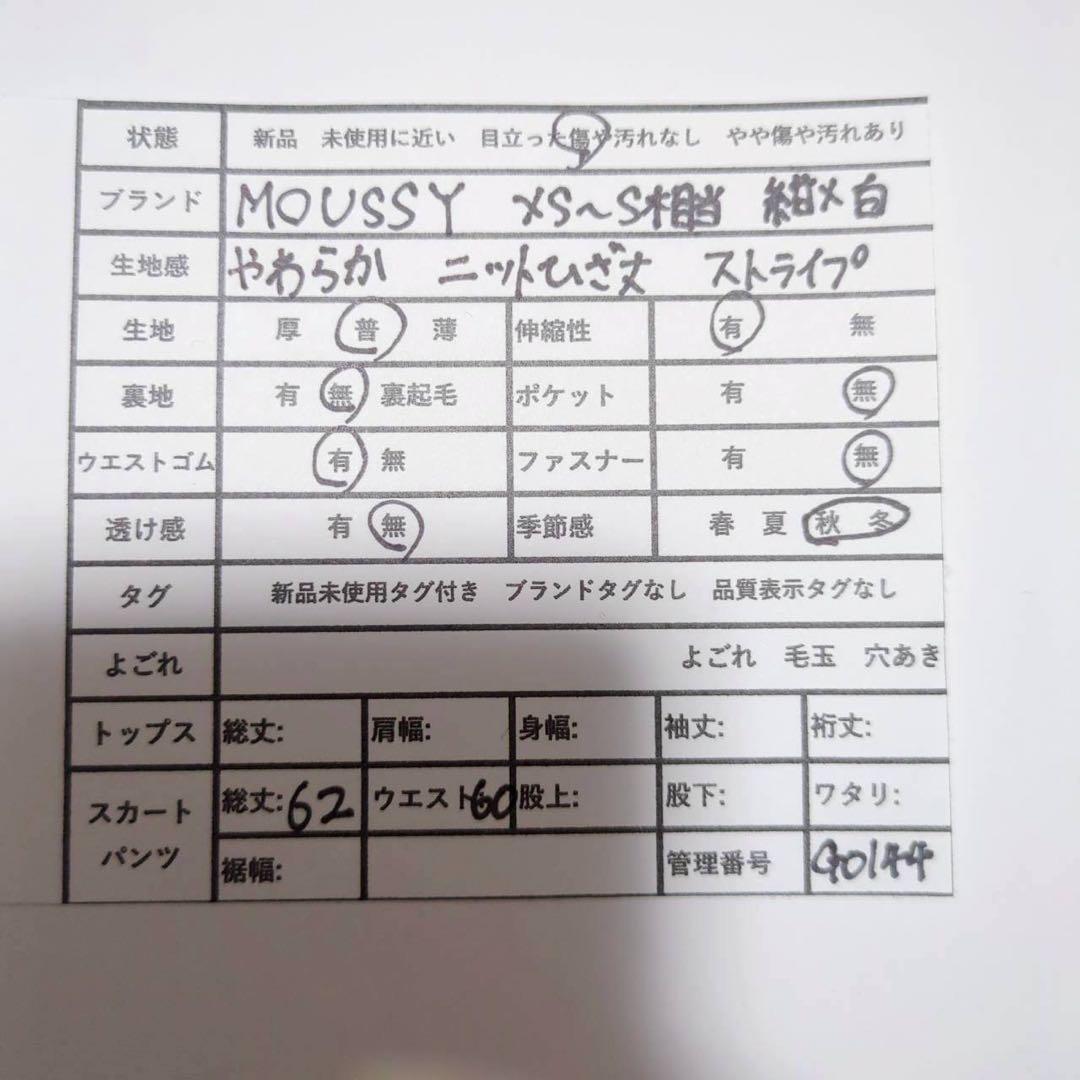 状態 新品 未使用に近い 目立った傷や汚れなし やや傷や汚れあり
ブランド MOUSSY XS～S相当 紺×白
生地感 やわらか ニットひざ丈 ストライプ
生地 厚 普 薄 伸縮性 有 無
裏地 有 無 裏起毛 ポケット 有 無
ウエストゴム 有 無 ファスナー 有 無
透け感 有 無 季節感 春 夏 秋 冬
タグ 新品未使用タグ付き ブランドタグなし 品質表示タグなし
よごれ よごれ 毛玉 穴あき
トップス 総丈: 肩幅: 身幅: 袖丈: 裄丈:
スカート パンツ 総丈:62 ウエスト:60 股上: 股下: ワタリ:
裾幅: 管理番号 G0144